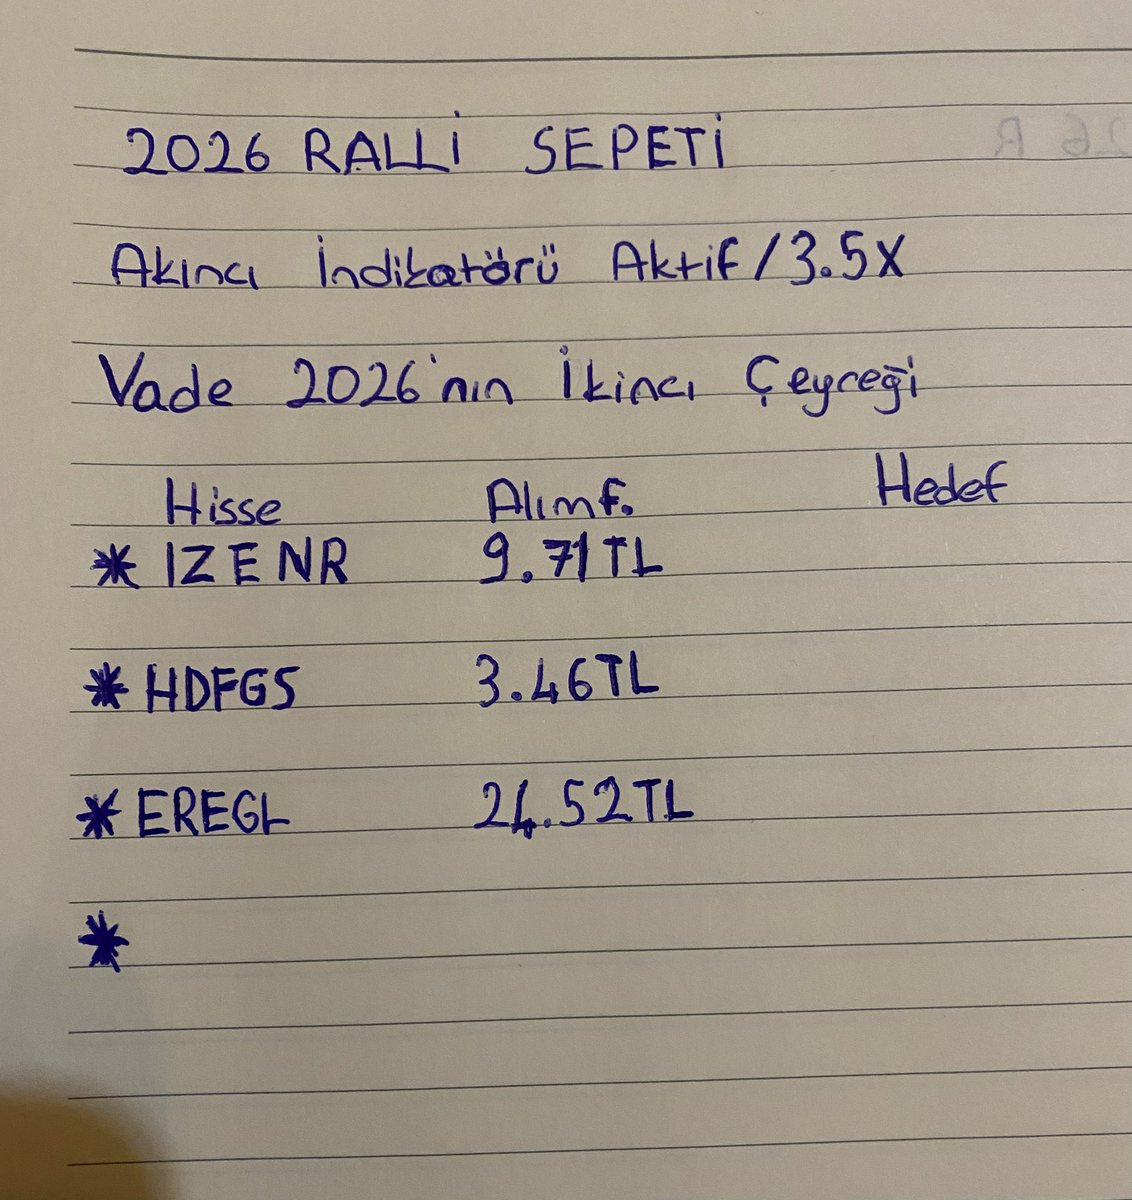 2026 RALLİ SEPETİ
Akıncı İndikatörü Aktif / 3.5X
Vade 2026'nın İkinci Çeyreği
Hisse Alımf. Hedef
* IZENR 9.71TL
* HDFGS 3.46TL
* EREGL 24.52TL
*